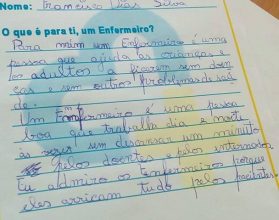 Nome: Francisco Dias Silva
O que é para ti, um Enfermeiro?
Para mim um Enfermeiro é uma
pessoa que ajuda as crianças e
os adultos a ficarem sem doen
ças e sem outros problemas de saú
de.
Um Enfermeiro é uma pessoa
boa que trabalha dia e noite
às vezes sem descansar um minuto
pelos doentes e pelos internados.
Eu admiro os Enfermeiros porque
eles arriscam tudo pelos pacientes.